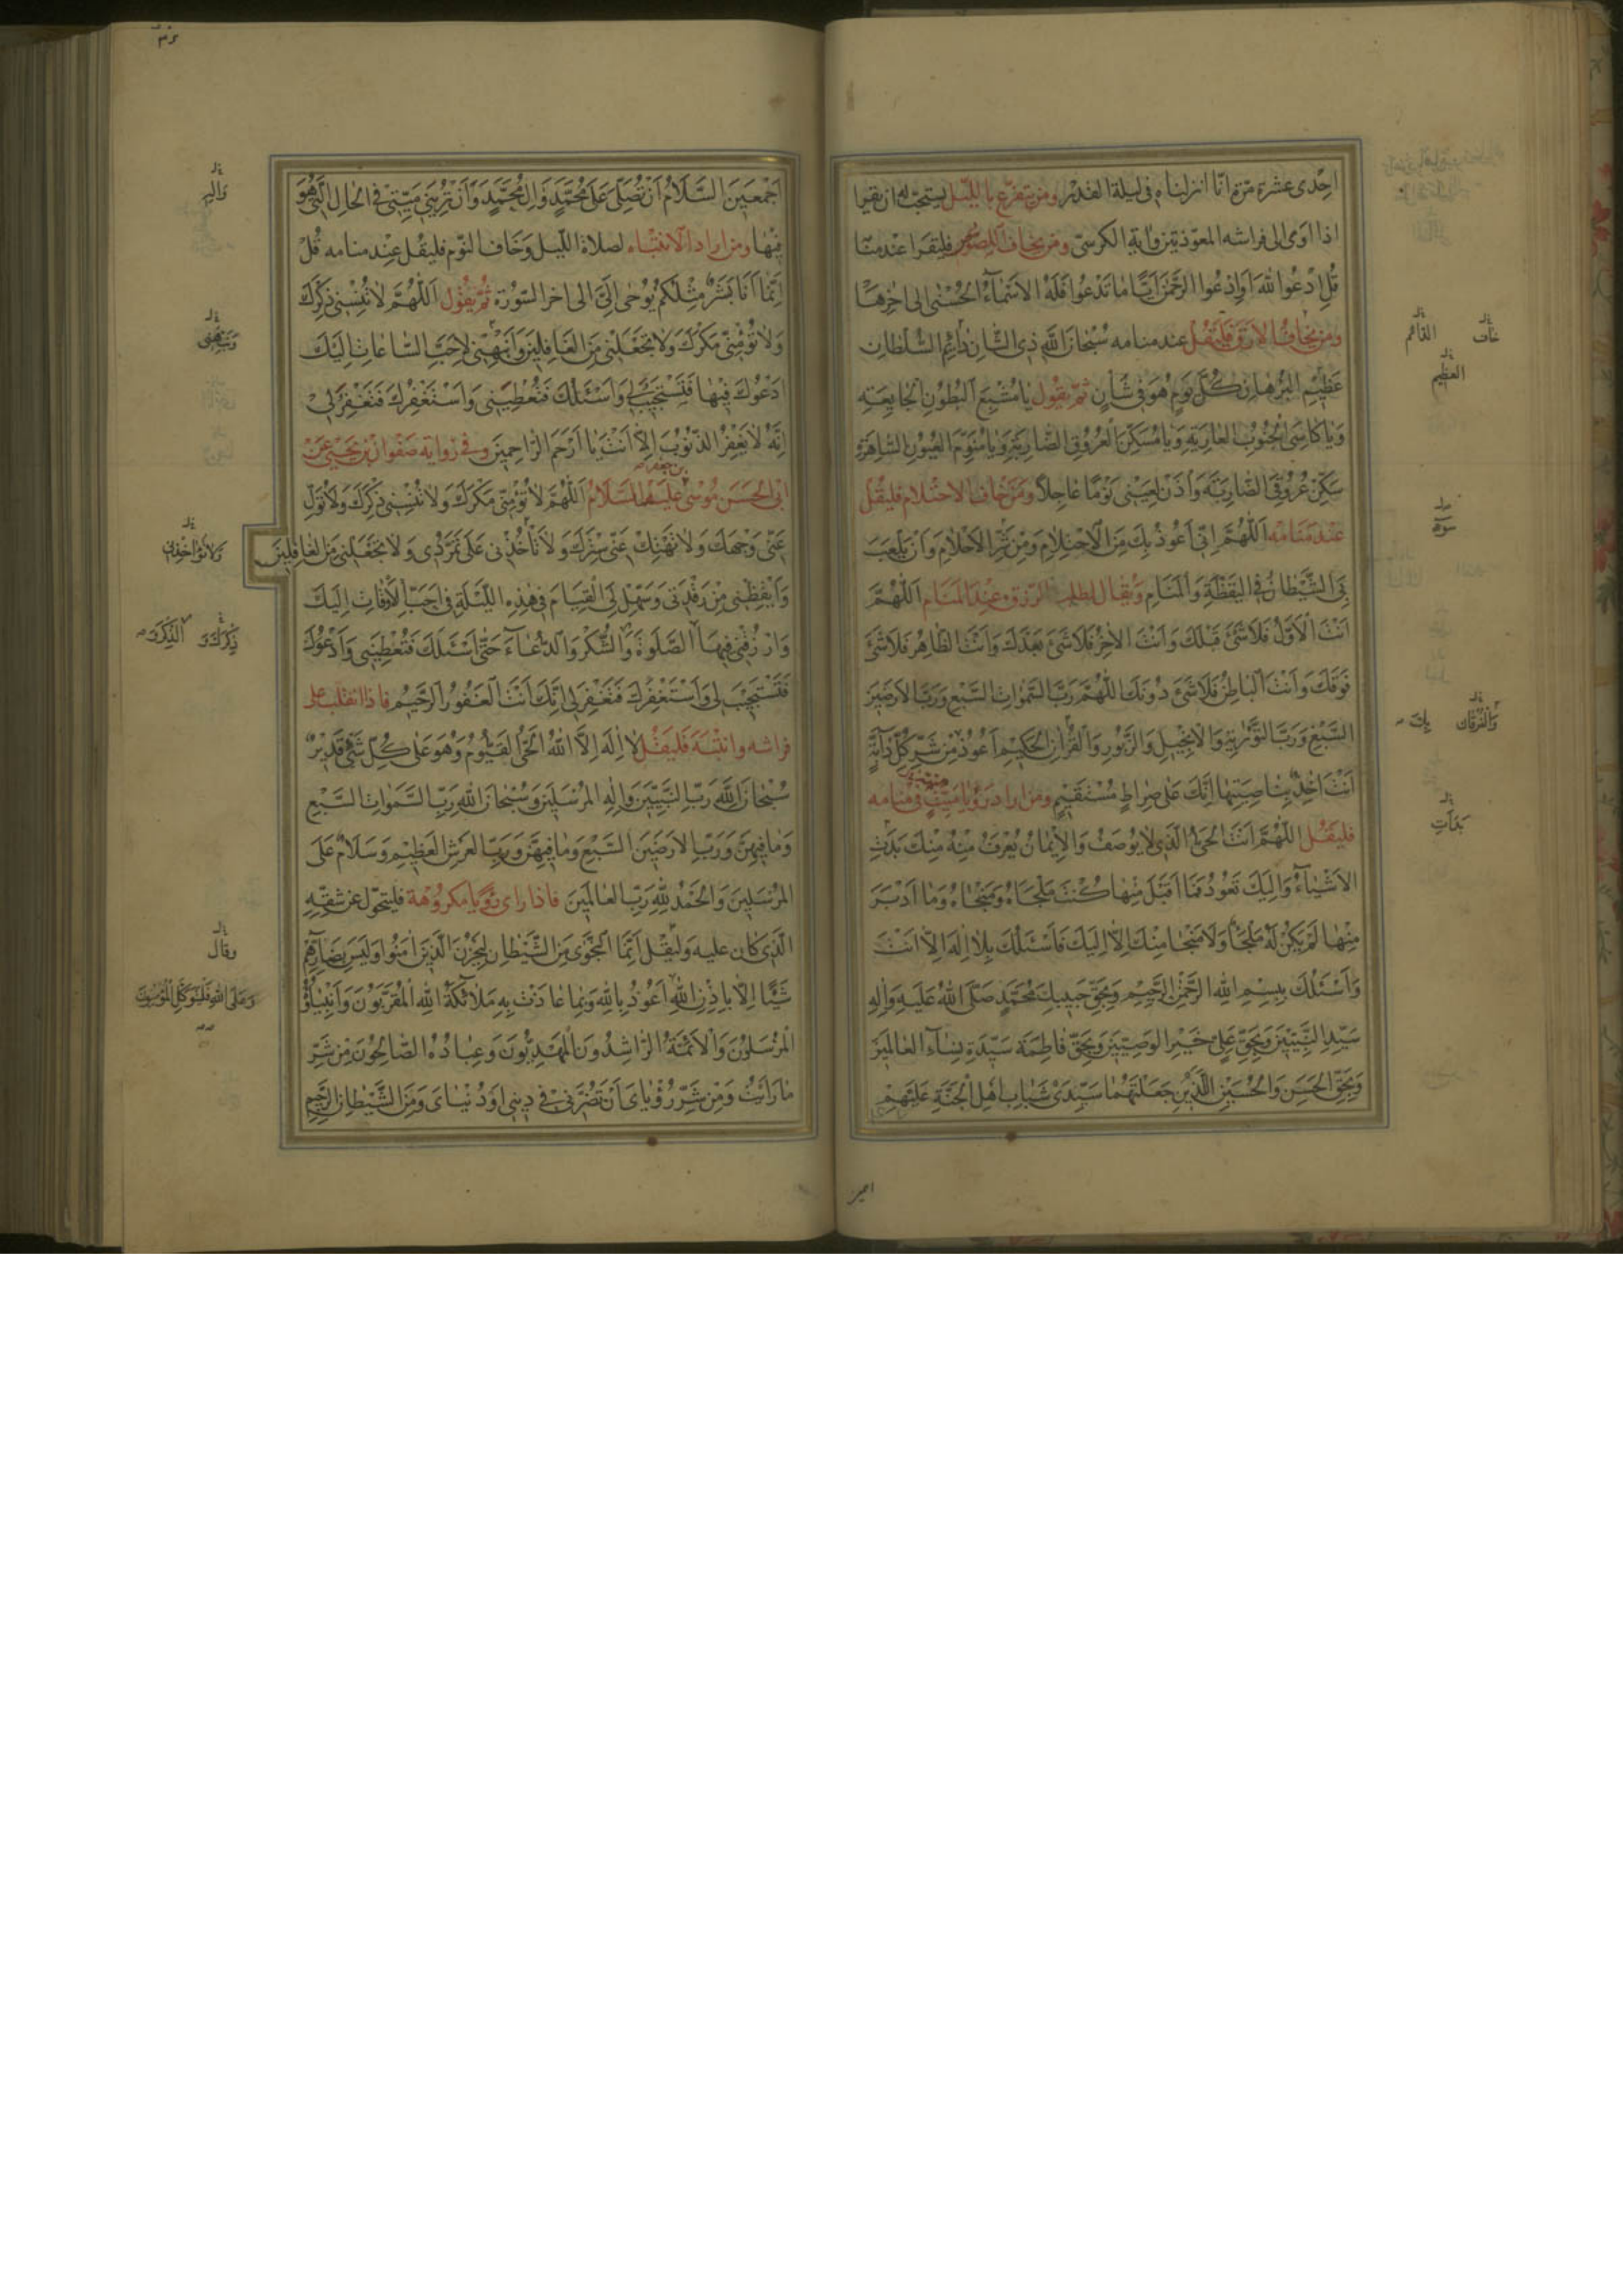 احدى عشرة مرّة انّا انزلناه فى ليلة القدر ومن يتفزّع بالليل يستحبّ له ان يقرا
اذا اوى الى فراشه المعوّذتين واية الكرسىّ ومن يخاف اللصوص فليقرا عند منامه
قُلِ ادْعُوا اللهَ اَوِ ادْعُوا الرَّحْمٰنَ اَيًّا مَا تَدْعُوا فَلَهُ الاَسْمَآءُ الْحُسْنى الى اخرها
ومن يخاف الارق فليقل عند منامه سُبْحَانَ اللهِ ذِى الشَّانِ دَائِمِ السُّلْطَانِ
عَظِيْمِ البُرْهَانِ كُلَّ يَوْمٍ هُوَ فى شَأنٍ ثمّ يقول يَا مُشْبِعَ البُطُونِ الْجَايِعَةِ
وَيَا كَاسِىَ الْجُنُوبِ العَارِيَةِ وَيَا مُسَكِّنَ العُرُوقِ الضَّارِبَةِ وَيَا مُنَوِّمَ العُيُونِ السَّاهِرَةِ
سَكِّنْ عُرُوقِىَ الضَّارِبَةَ وَأْذَنْ لِعَيْنِى نَوْمًا عَاجِلًا ومن خاف الاحتلام فليقل
عند منامه اَللّٰهُمَّ اِنِّى اَعُوذُ بِكَ مِنَ الاِحْتِلَامِ وَمِنْ شَرِّ الاَحْلَامِ وَاَنْ يَلْعَبَ
بِىَ الشَّيْطَانُ فِى الْيَقَظَةِ وَالْمَنَامِ ويقال لطلب الرزق عند المنام اَللّٰهُمَّ
اَنْتَ الْاَوَّلُ فَلَا شَىْءَ قَبْلَكَ وَاَنْتَ الاٰخِرُ فَلَا شَىْءَ بَعْدَكَ وَاَنْتَ الظَّاهِرُ فَلَا شَىْءَ
فَوْقَكَ وَاَنْتَ البَاطِنُ فَلَا شَىْءَ دُونَكَ اللّٰهُمَّ رَبَّ السَّمٰوَاتِ السَّبْعِ وَرَبَّ الاَرَضِيْنَ
السَّبْعِ وَرَبَّ التَّوْرٰيةِ وَالاِنْجِيْلِ وَالزَّبُورِ وَالْقُرْاٰنِ الْحَكِيْمِ اَعُوذُ مِنْ شَرِّ كُلِّ دَآبَّةٍ
اَنْتَ اٰخِذٌ بِنَاصِيَتِهَا اِنَّكَ عَلٰى صِرَاطٍ مُسْتَقِيْمٍ ومن اراد رؤيا ميّت فى منامه
فليقل اللّٰهُمَّ اَنْتَ الحَىُّ الَّذِى لَا يُوصَفُ وَالاِيْمَانُ يُعْرَفُ مِنْهُ مِنْكَ بَدَتِ
الاَشْيَآءُ وَاِلَيْكَ تَعُودُ فَمَا اَقْبَلَ مِنْهَا كُنْتَ مَلْجَاَهُ وَمَنْجَاهُ وَمَا اَدْبَرَ
مِنْهَا لَمْ يَكُنْ لَهُ مَلْجَأٌ وَلَا مَنْجَا مِنْكَ اِلَّا اِلَيْكَ فَاَسْئَلُكَ بِلَا اِلٰهَ اِلَّا اَنْتَ
وَاَسْئَلُكَ بِبِسْمِ اللهِ الرَّحْمٰنِ الرَّحِيْمِ وَبِحَقِّ حَبِيبِكَ مُحَمَّدٍ صَلَّى اللهُ عَلَيْهِ وَاٰلِهِ
سَيِّدِ النَّبِيّيْنَ وَبِحَقِّ عَلِىٍّ خَيْرِ الوَصِيّيْنَ وَبِحَقِّ فَاطِمَةَ سَيِّدَةِ نِسَآءِ العَالَمِيْنَ
وَبِحَقِّ الحَسَنِ وَالْحُسَيْنِ اللَّذَيْنِ جَعَلْتَهُمَا سَيِّدَىْ شَبَابِ اَهْلِ الْجَنَّةِ عَلَيْهِمْ
خاف
القائم
العظيم
سوء
وَالْفُرْقَانِ
بِكَ
بَدَاَتِ
اَجْمَعِيْنَ السَّلَامُ اَنْ تُصَلِّىَ عَلٰى مُحَمَّدٍ وَاٰلِ مُحَمَّدٍ وَاَنْ تُرِيَنِى مَيِّتِى فِى الحَالِ الَّتِى هُوَ
فِيْهَا ومن اراد الانتباه لصلاة الليل وخاف النوم فليقل عند منامه قُلْ
اِنَّمَا اَنَا بَشَرٌ مِثْلُكُمْ يُوحٰى اِلَىَّ الى اخر السورة ثمّ يقول اَللّٰهُمَّ لَا تُنْسِنِى ذِكْرَكَ
وَلَا تُؤْمِنِّى مَكْرَكَ وَلَا تَجْعَلْنِى مِنَ الغَافِلِيْنَ وَاَنْبِهْنِى لِاَحَبِّ السَّاعَاتِ اِلَيْكَ
اَدْعُوكَ فِيْهَا فَتَسْتَجِيْبُ لِى وَاَسْئَلُكَ فَتُعْطِيَنِى وَاَسْتَغْفِرُكَ فَتَغْفِرُ لِى
اِنَّهُ لَا يَغْفِرُ الذُّنُوبَ اِلَّا اَنْتَ يَا اَرْحَمَ الرَّاحِمِيْنَ وفى رواية صفوان بن يحيى عن
ابى الحسن موسى بن جعفر عليهما السلام اَللّٰهُمَّ لَا تُؤْمِنِّى مَكْرَكَ وَلَا تُنْسِنِى ذِكْرَكَ وَلَا تُوَلِّ
عَنِّى وَجْهَكَ وَلَا تَهْتِكْ عَنِّى سِتْرَكَ وَلَا تَأْخُذْنِى عَلٰى تَمَرُّدِى وَلَا تَجْعَلْنِى مِنَ الغَافِلِيْنَ
وَاَيْقِظْنِى مِنْ رَقْدَتِى وَسَهِّلْ لِىَ القِيَامَ فِى هٰذِهِ اللَّيْلَةِ فِى اَحَبِّ الاَوْقَاتِ اِلَيْكَ
وَارْزُقْنِى فِيْهَا الصَّلٰوةَ وَالشُّكْرَ وَالدُّعَآءَ حَتّٰى اَسْئَلَكَ فَتُعْطِيَنِى وَاَدْعُوَكَ
فَتَسْتَجِيْبَ لِى وَاَسْتَغْفِرَكَ فَتَغْفِرَ لِى اِنَّكَ اَنْتَ الغَفُورُ الرَّحِيْمُ فاذا انقلب على
فراشه وانتبه فليقل لَا اِلٰهَ اِلَّا اللهُ الحَىُّ القَيُّومُ وَهُوَ عَلٰى كُلِّ شَىْءٍ قَدِيْرٌ
سُبْحَانَ اللهِ رَبِّ النَّبِيّيْنَ وَاِلٰهِ المُرْسَلِيْنَ وَسُبْحَانَ اللهِ رَبِّ السَّمٰوَاتِ السَّبْعِ
وَمَا فِيهِنَّ وَرَبِّ الاَرَضِيْنَ السَّبْعِ وَمَا فِيْهِنَّ وَرَبِّ العَرْشِ العَظِيْمِ وَسَلَامٌ عَلَى
المُرْسَلِيْنَ وَالْحَمْدُ لِلّٰهِ رَبِّ العَالَمِيْنَ فاذا راى رؤيا مكروهة فليتحوّل عن شقّه
الّذى كان عليه وليقل اِنَّمَا النَّجْوٰى مِنَ الشَّيْطَانِ لِيَحْزُنَ الَّذِيْنَ اٰمَنُوا وَلَيْسَ بِضَارِّهِمْ
شَيْئًا اِلَّا بِاِذْنِ اللهِ اَعُوذُ بِاللهِ وَبِمَا عَاذَتْ بِهِ مَلَائِكَةُ اللهِ المُقَرَّبُونَ وَاَنْبِيَاؤُهُ
الْمُرْسَلُونَ وَالاَئِمَّةُ الرَّاشِدُونَ المَهْدِيُّونَ وَعِبَادُهُ الصَّالِحُونَ مِنْ شَرِّ
مَا رَاَيْتُ وَمِنْ شَرِّ رُؤْيَاىَ اَنْ تَضُرَّنِى فِى دِيْنِى اَوْ دُنْيَاىَ وَمِنَ الشَّيْطَانِ الرَّجِيْمِ
وَنَبِّهْنِى
وَلَا تُؤَاخِذْنِى
ذِكْرَكَ وَ
وقال
وَعَلَى اللهِ فَلْيَتَوَكَّلِ الْمُؤْمِنُونَ